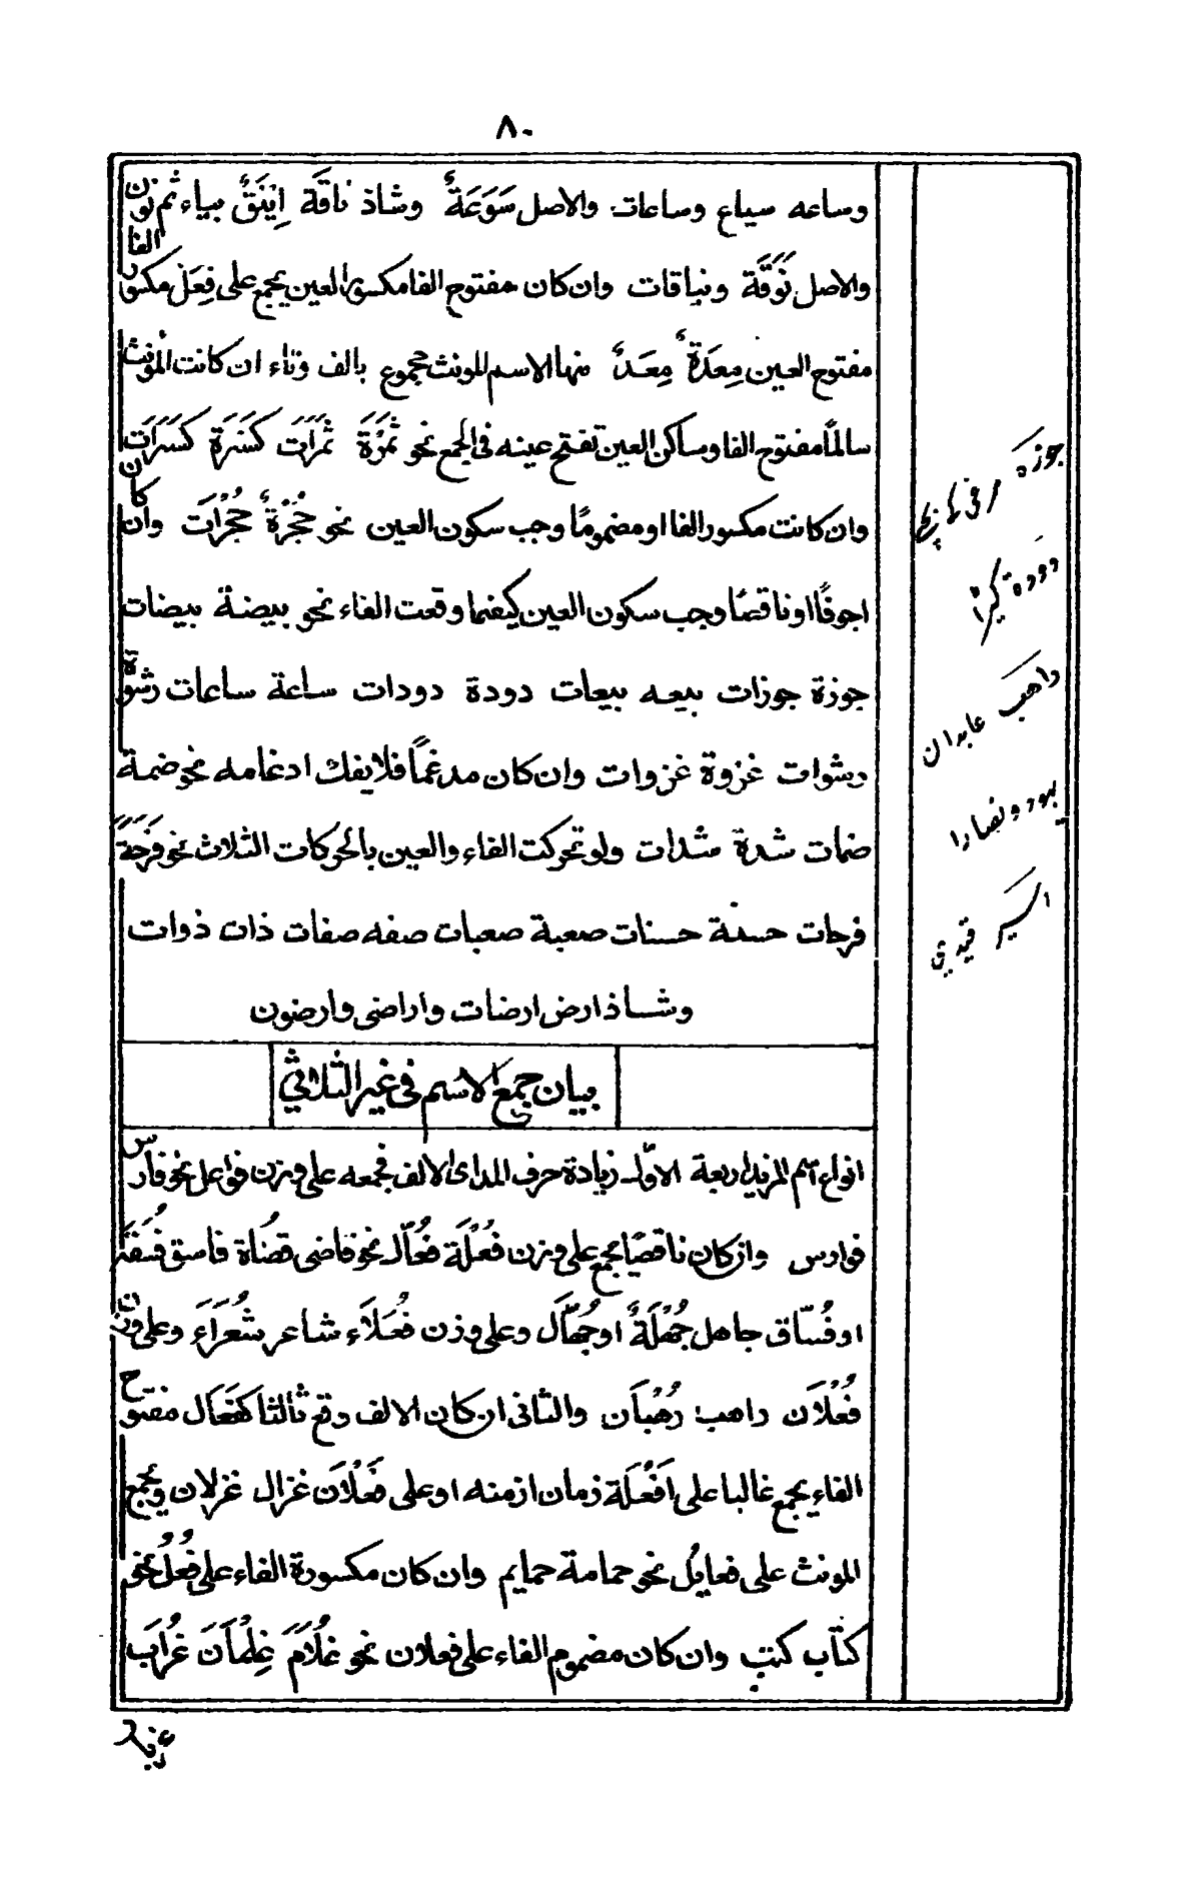 ٨٠
وساعه سياع وساعات والاصل سَوَعَةٌ وشاذ ناقَة اِيْنَقٌ بياء ثم نون
والاصل نَوَقَة ونياقات وان كان مفتوح الفا مكسور العين يجمع على فِعَل مكسور الفا
مفتوح العين مِعدَةٌ مِعَدٌ منها الاسم المونث مجموع بالف وتاء ان كانت المؤنث
سالمًا مفتوح الفا وساكن العين تفتح عينه فى الجمع نحو ثَمْرَة ثَمَرَات كَسْرَة كَسَرَات
وان كانت مكسور الفا او مضمومًا وجب سكون العين نحو حُجْرَةٌ حُجْرَات وان كان
اجوفًا او ناقصًا وجب سكون العين كيفما وقعت الفاء نحو بيضة بيضات
جوزة جوزات بيعه بيعات دودة دودات ساعة ساعات رشوة
رشوات غزوة غزوات وان كان مدغمًا فلا يفك ادغامه نحو ضمة
ضمات شدة شدات ولو تحركت الفاء والعين بالحركات الثلاث نحو فَرَحَة
فرحات حسنة حسنات صعبة صعبات صفه صفات ذات ذوات
وشاذ ارض ارضات واراضى وارضون
بيان جمع الاسم فى غير الثلاثي
انواع اسم المزيد اربعة الاوّل زيادة حرف المد اى الالف فجمعه على وزن فواعل نحو فارس
فوارس وان كان ناقصًا يجمع على وزن فُعْلَة فُعَّال نحو قاضى قضُاة فاسق فُسَقَة
او فُسّاق جاهل جُهْلَةٌ او جُهَّال وعلى وزن فُعَلَاء شاعر شُعَرَاء وعلى وزن
فُعْلَان راهب رُهْبَان والثانى ان كان الالف وقع ثالثا كفَعَال مفتوح
الفاء يجمع غالبا على اَفْعِلَة زمان ازمنه او على فَعْلَان غزال غزلان ويجمع
المونث على فعايل نحو حمامة حمايم وان كان مكسورة الفاء على فُعُل نحو
كتاب كتب وان كان مضموم الفاء على فعلان نحو غُلَام غِلْمَان غُرَاب
جوزه
دوده
راهب عابدان
يهود ونصارا
اسير قيدي